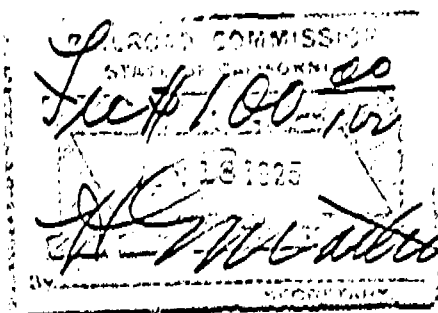 RAILROAD COMMISSION
STATE OF CALIFORNIA
Fee $100 00/100
18 1925
BY
SECRETARY